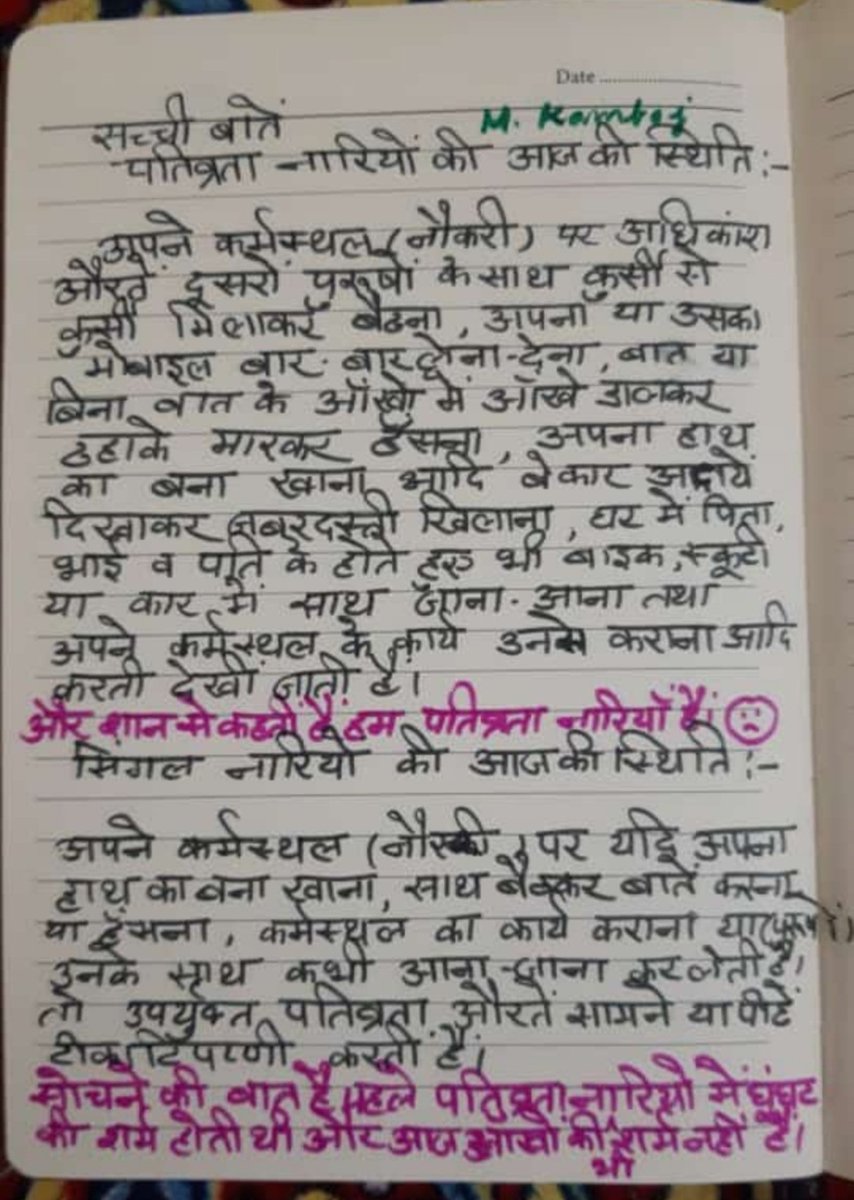 Date
सच्ची बातें
M.
पतिव्रता -नारियों की आज की स्थिति :-
अपने कर्मस्थल (नौकरी) पर अधिकांश
औरतें दूसरों पुरूषों के साथ कुर्सी से
कुर्सी मिलाकर बैठना, अपना या उसका
मोबाइल बार-बार देना, बात या
बिना बात के आँखों में आँखे डालकर
ठहाके मारकर हँसना, अपना हाथ
का बना खाना आदि बेकार अदायें
दिखाकर जबरदस्ती खिलाना, घर में पिता,
भाई व पति के होते हुए भी बाइक, स्कूटी
या कार में साथ जाना-आना तथा
अपने कर्मस्थल के कार्य उनसे कराना आदि
करती देखी जाती हैं।
और शान से कहतीं हैं हम पतिव्रता नारियाँ हैं।
सिंगल नारियों की आज की स्थिति :-
अपने कर्मस्थल (नौकरी) पर यदि अपना
हाथ का बना खाना, साथ बैठकर बातें करना
या हँसना, कर्मस्थल का कार्य कराना या (पुरूषों)
उनके साथ कभी आना-जाना कर लेती हैं।
तो उपर्युक्त पतिव्रता औरतें सामने या पीठे
टीका टिप्पणी करतीं हैं।
सोचने की बात है पहले पतिव्रता नारियों में घूंघट
की शर्म होती थी और आज आखों की भी शर्म नहीं है।